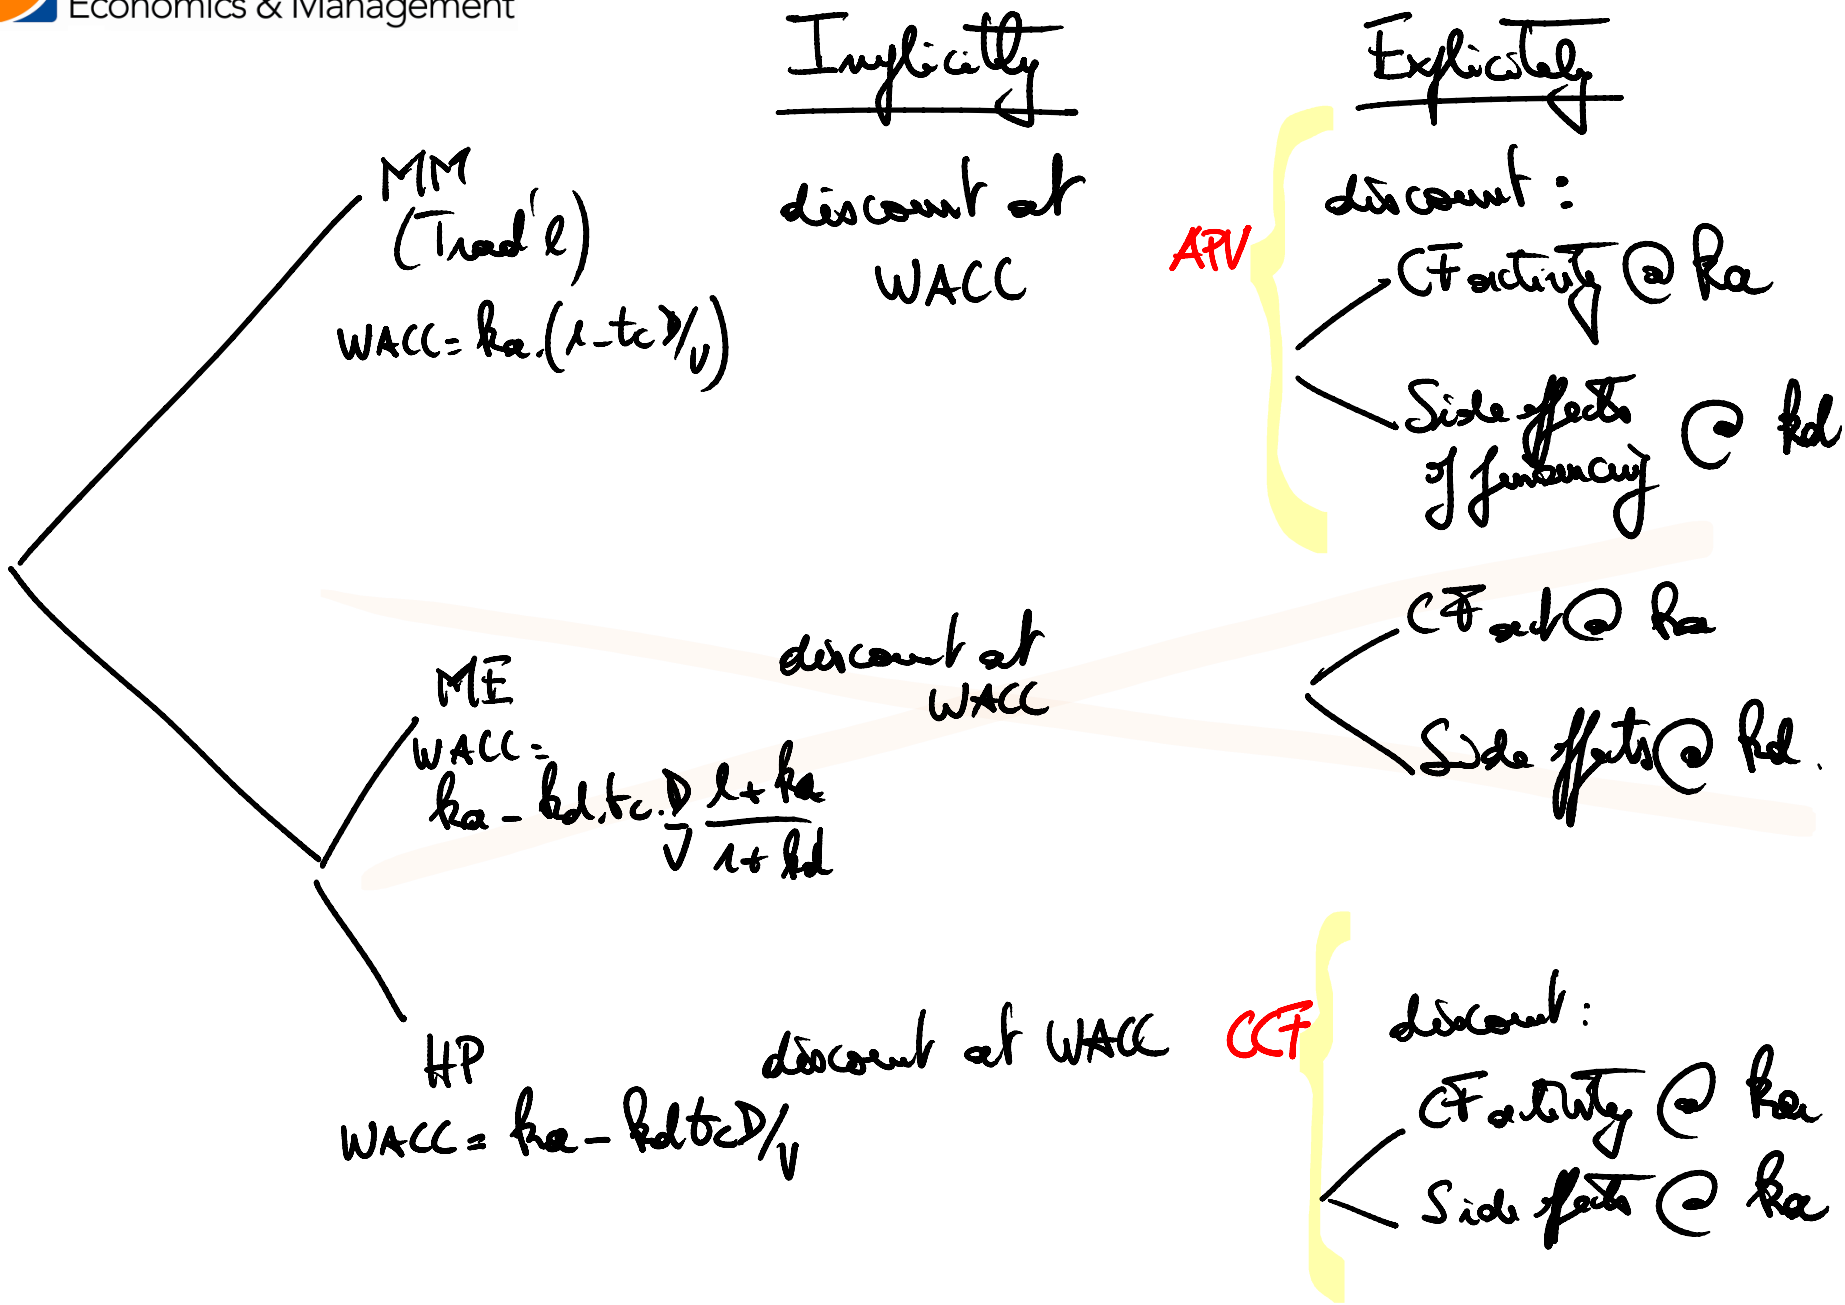 Economics & Management
Implicitly
Explicitely
MM
(Trad'l)
WACC = ka.(1-tc D/V)
discount at
WACC
APV
discount :
CF activity @ ka
Side effects
of financing @ kd
ME
WACC =
ka - kd.tc.D/V (1+ka)/(1+kd)
discount at
WACC
CF act @ ka
Side effects @ kd.
HP
WACC = ka - kd tc D/V
discount at WACC
CCF
discount:
CF activity @ ka
Side effects @ ka